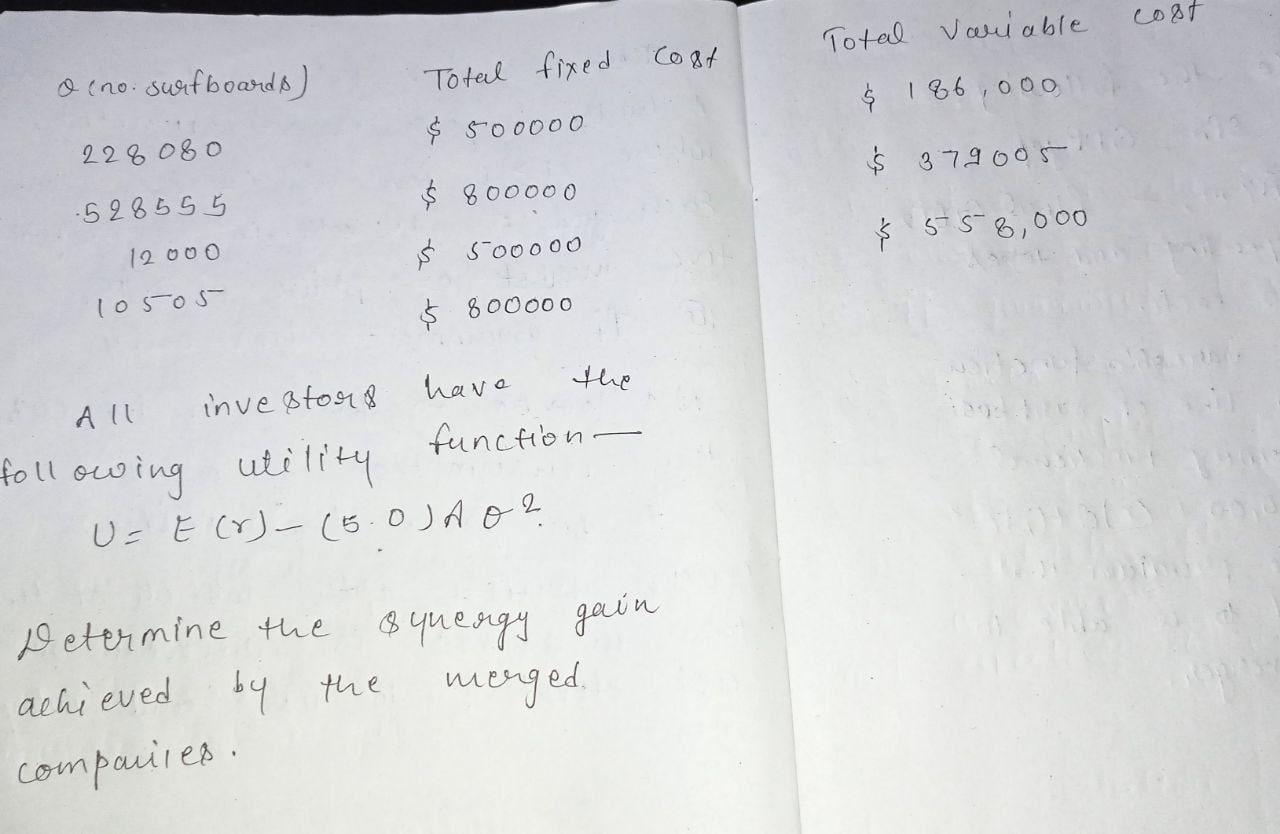 Q (no. surfboards) Total fixed cost Total variable cost
228080 $ 500000 $ 186,000
528555 $ 800000 $ 379005
12000 $ 500000 $ 558,000
10505 $ 800000
All investors have the
following utility function —
U = E (r) – (5.0) A σ2.
Determine the synergy gain
achieved by the merged.
companies.